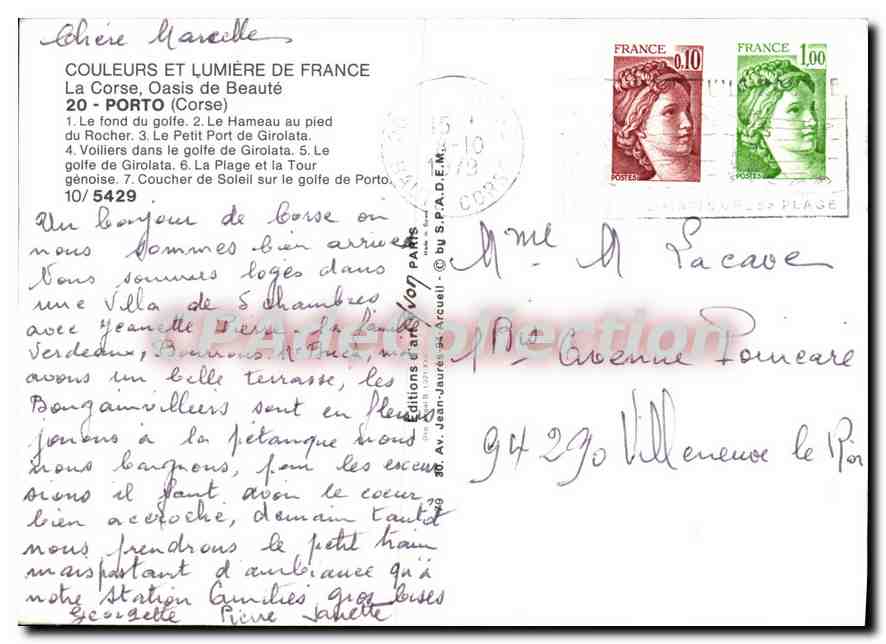 Chère Marcelle
COULEURS ET LUMIÈRE DE FRANCE
La Corse, Oasis de Beauté
20 - PORTO (Corse)
1. Le fond du golfe. 2. Le Hameau au pied
du Rocher. 3. Le Petit Port de Girolata.
4. Voiliers dans le golfe de Girolata. 5. Le
golfe de Girolata. 6. La Plage et la Tour
génoise. 7. Coucher de Soleil sur le golfe de Porto.
10/ 5429
Un bonjour de Corse ou
nous sommes bien arrivés
Nous sommes logés dans
une Villa de 5 chambres
avec Jeanette Pierre, la famille
Verdeaux,
avons un belle terrasse, les
Bougainvilliers sont en fleurs
jouons à la pétanque nous
nous baignons, pour les excur
sions il faut avoir le coeur
bien accroché, demain tantôt
nous prendrons le petit train
mais pas tant d'ambiance qu'à
notre Station Amitiés gros bises
Georgette Pierre Janette
Editions d'art Yvon PARIS
30, Av. Jean-Jaurès-94 Arcueil - © by S.P.A.D.E.M.
FRANCE
0,10
POSTES
FRANCE
1,00
POSTES
15
-10
1979
CORSE
PLAGE
Mme M Lacave
1Bis Avenue Poincaré
94290 Villeneuve le Roi
PhadeCollection